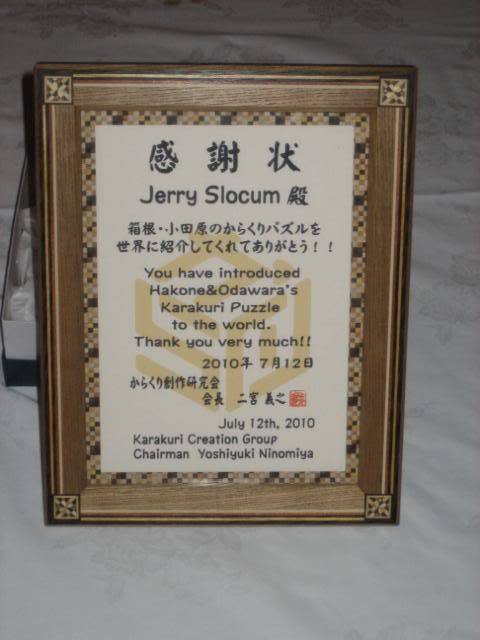 感謝状
Jerry Slocum 殿
箱根・小田原のからくりパズルを
世界に紹介してくれてありがとう！！
You have introduced
Hakone&Odawara's
Karakuri Puzzle
to the world.
Thank you very much!!
2010年 7月12日
からくり創作研究会
会長 二宮 義之
July 12th, 2010
Karakuri Creation Group
Chairman Yoshiyuki Ninomiya